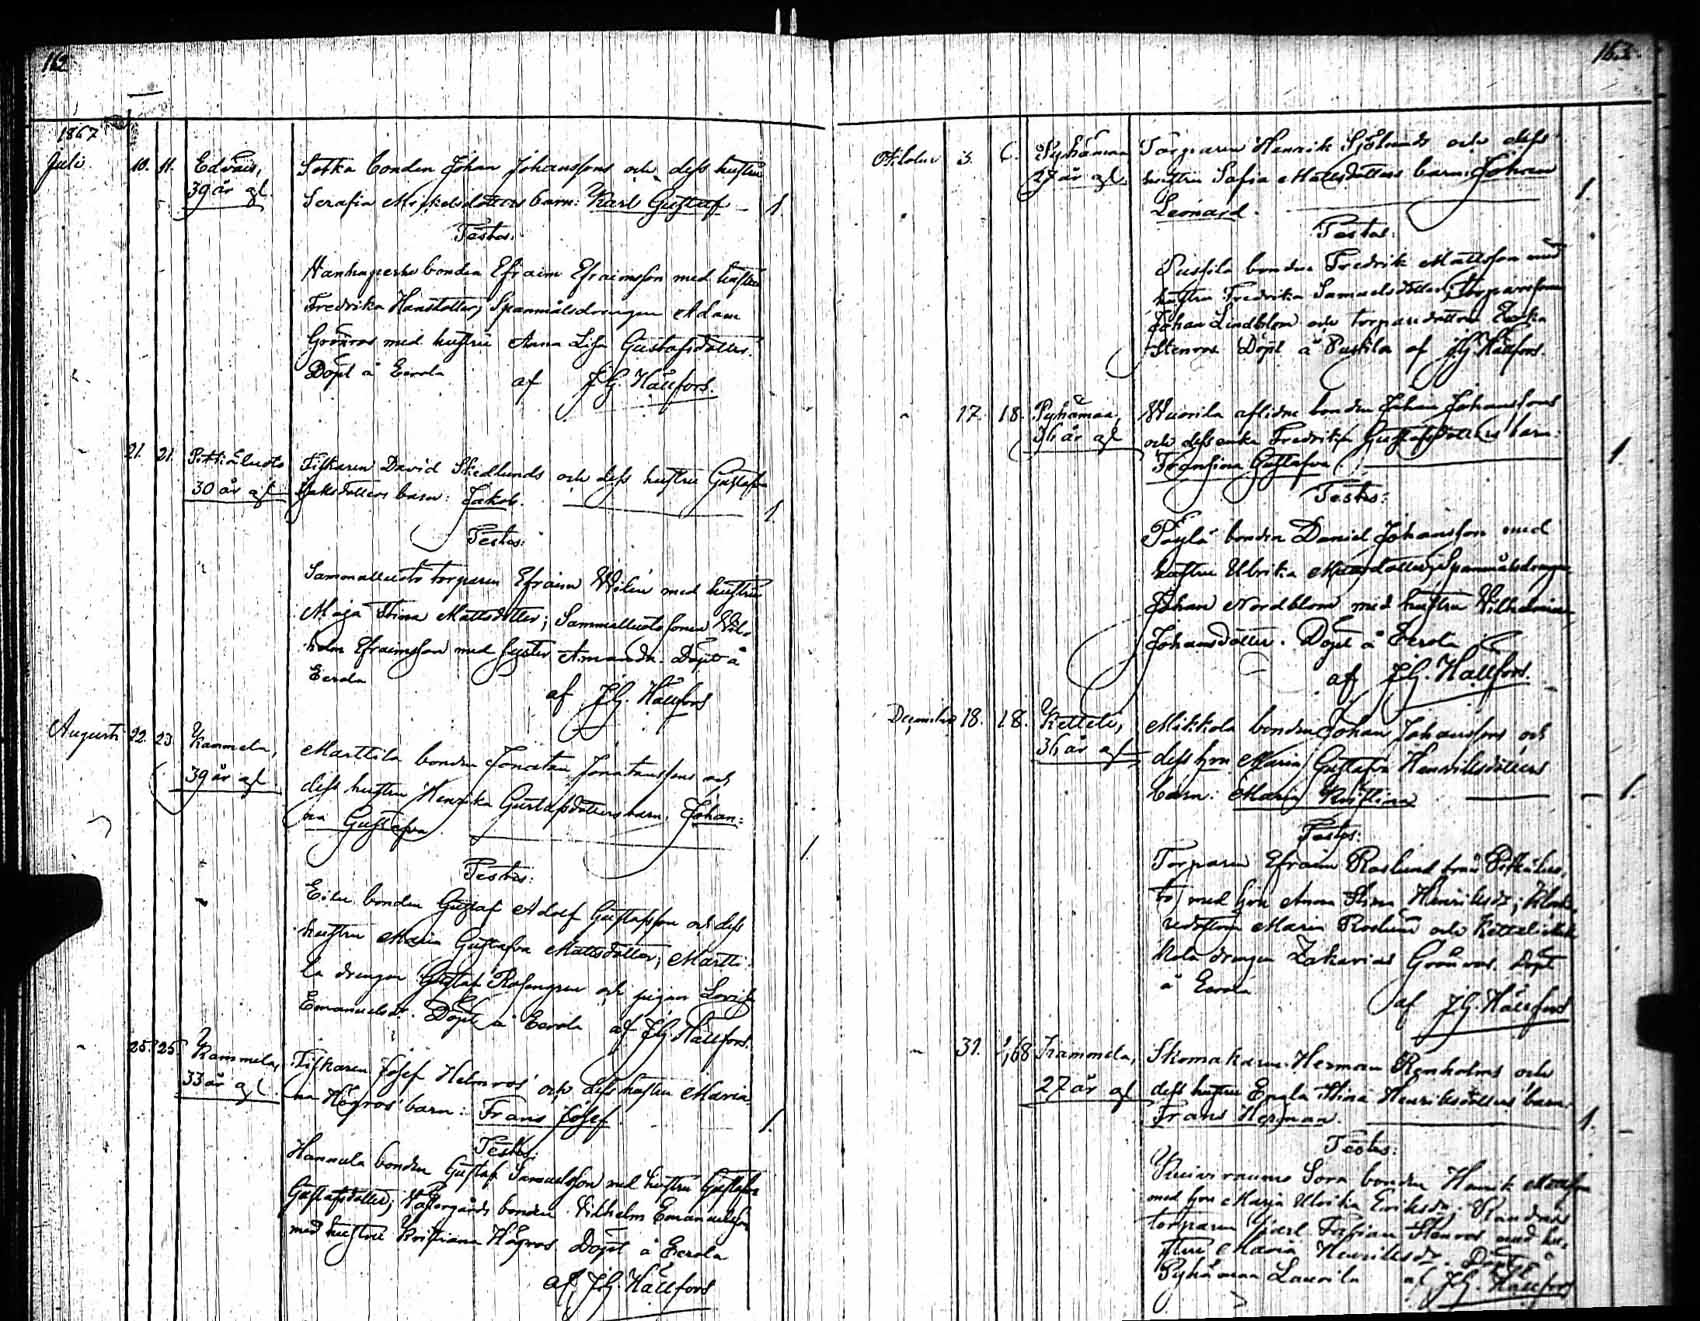 162
1867
Juli 10. 11. Edväis, Sotka bonden Johan Johanssons och dess hustru
39 år gl. Serafia Mickelsdotters barn: Karl Gustaf 1
Testes:
bonden Efraim Efraimsson med hustru
Fredrika Hansdotter; Spanmålsdrengen Adam
Grönroos med hustru Anna Lisa Gustafsdotter.
Döpt å Eerola af J. G. Hällfors.
21. 21. Pitkäluoto Fiskaren David Skedlunds och dess hustru Gustafva
30 år gl. Jaksdotters barn: Jakob. 1.
Testes:
Sammalluoto torparen Efraim Wilén med hustru
Maja Stina Mattsdotter; Sammalluoto sonen Vil-
helm Efraimsson med syster Amanda. Döpt å
Eerola af J. G. Hällfors
Augusti 22. 23 Kammela, Marttila bonden Jonatan Jonatanssons och
39 år gl. dess hustru Henrika Gustafsdotters barn: Johan-
na Gustafva 1.
Testes:
bonden Gustaf Adolf Gustafsson och dess
hustru Maria Gustafva Mattsdotter; Martti-
la drengen Gustaf Rosengren och pigan Lovisa
Emanuelsdr. Döpt å Eerola af J. G. Hällfors.
25. 25. Kammela, Fiskaren Josef Helmros' och dess hustru Maria-
33 år gl. na Högros' barn: Frans Josef. 1.
Testes:
Hannula bonden Gustaf Samuelsson med hustru Gustafva
Gustafsdotter; Västergårds bonden Vilhelm Emanuelsson
med hustru Kristiana Högros. Döpt å Eerola
af J. G. Hällfors
163.
Oktober 3. 6. Pyhämaa Torparen Henrik Sjölunds och dess
27 år gl. hustru Sofia Mattsdotters barn: Johan
Leonard. 1.
Testes:
Puskila bonden Fredrik Mattsson med
hustru Fredrika Samuelsdotter; Torparesonen
Johan Lindblom och torparedottren
Stenros. Döpt å Puskila af J. G. Hällfors.
17. 18. Pyhämaa, Wuorila aflidne bonden Johan Johanssons
36 år gl. och dess enka Fredrika Gustafsdotters barn:
Josefina Gustafva 1.
Testes:
Päylä bonden Daniel Johansson med
hustru Ulrika Mattsdotter; Spanmålsdrengen
Johan Nordblom med hustru Vilhelmina
Johansdotter. Döpt å Eerola
af J. G. Hällfors.
December 18. 18. Ketteli, Mikkola bonden Johan Johanssons och
36 år gl. dess hru Maria Gustafva Henriksdotters
barn: Maria Kristina 1.
Testes:
Torparen Efraim Roslund från Pitkäluo-
to med hru Anna Stina Henriksdr;
Maria Roslund och Ketteli Mik-
kola drengen Zakarias Grönroos. Döpt
å Eerola af J. G. Hällfors
31. 1/1 68 Kammela, Skomakaren Herman Renholms och
27 år gl. dess hustru Engla Mina Henriksdotters barn:
Frans Herman. 1.
Testes:
Sora bonden Henrik Mattsson
med hru Maja Ulrika Eriksdr.
torparen Karl Fabian Stenros med hu-
stru Maria Henriksdr. Döpt å
Pyhämaa Laurila af J. G. Hällfors